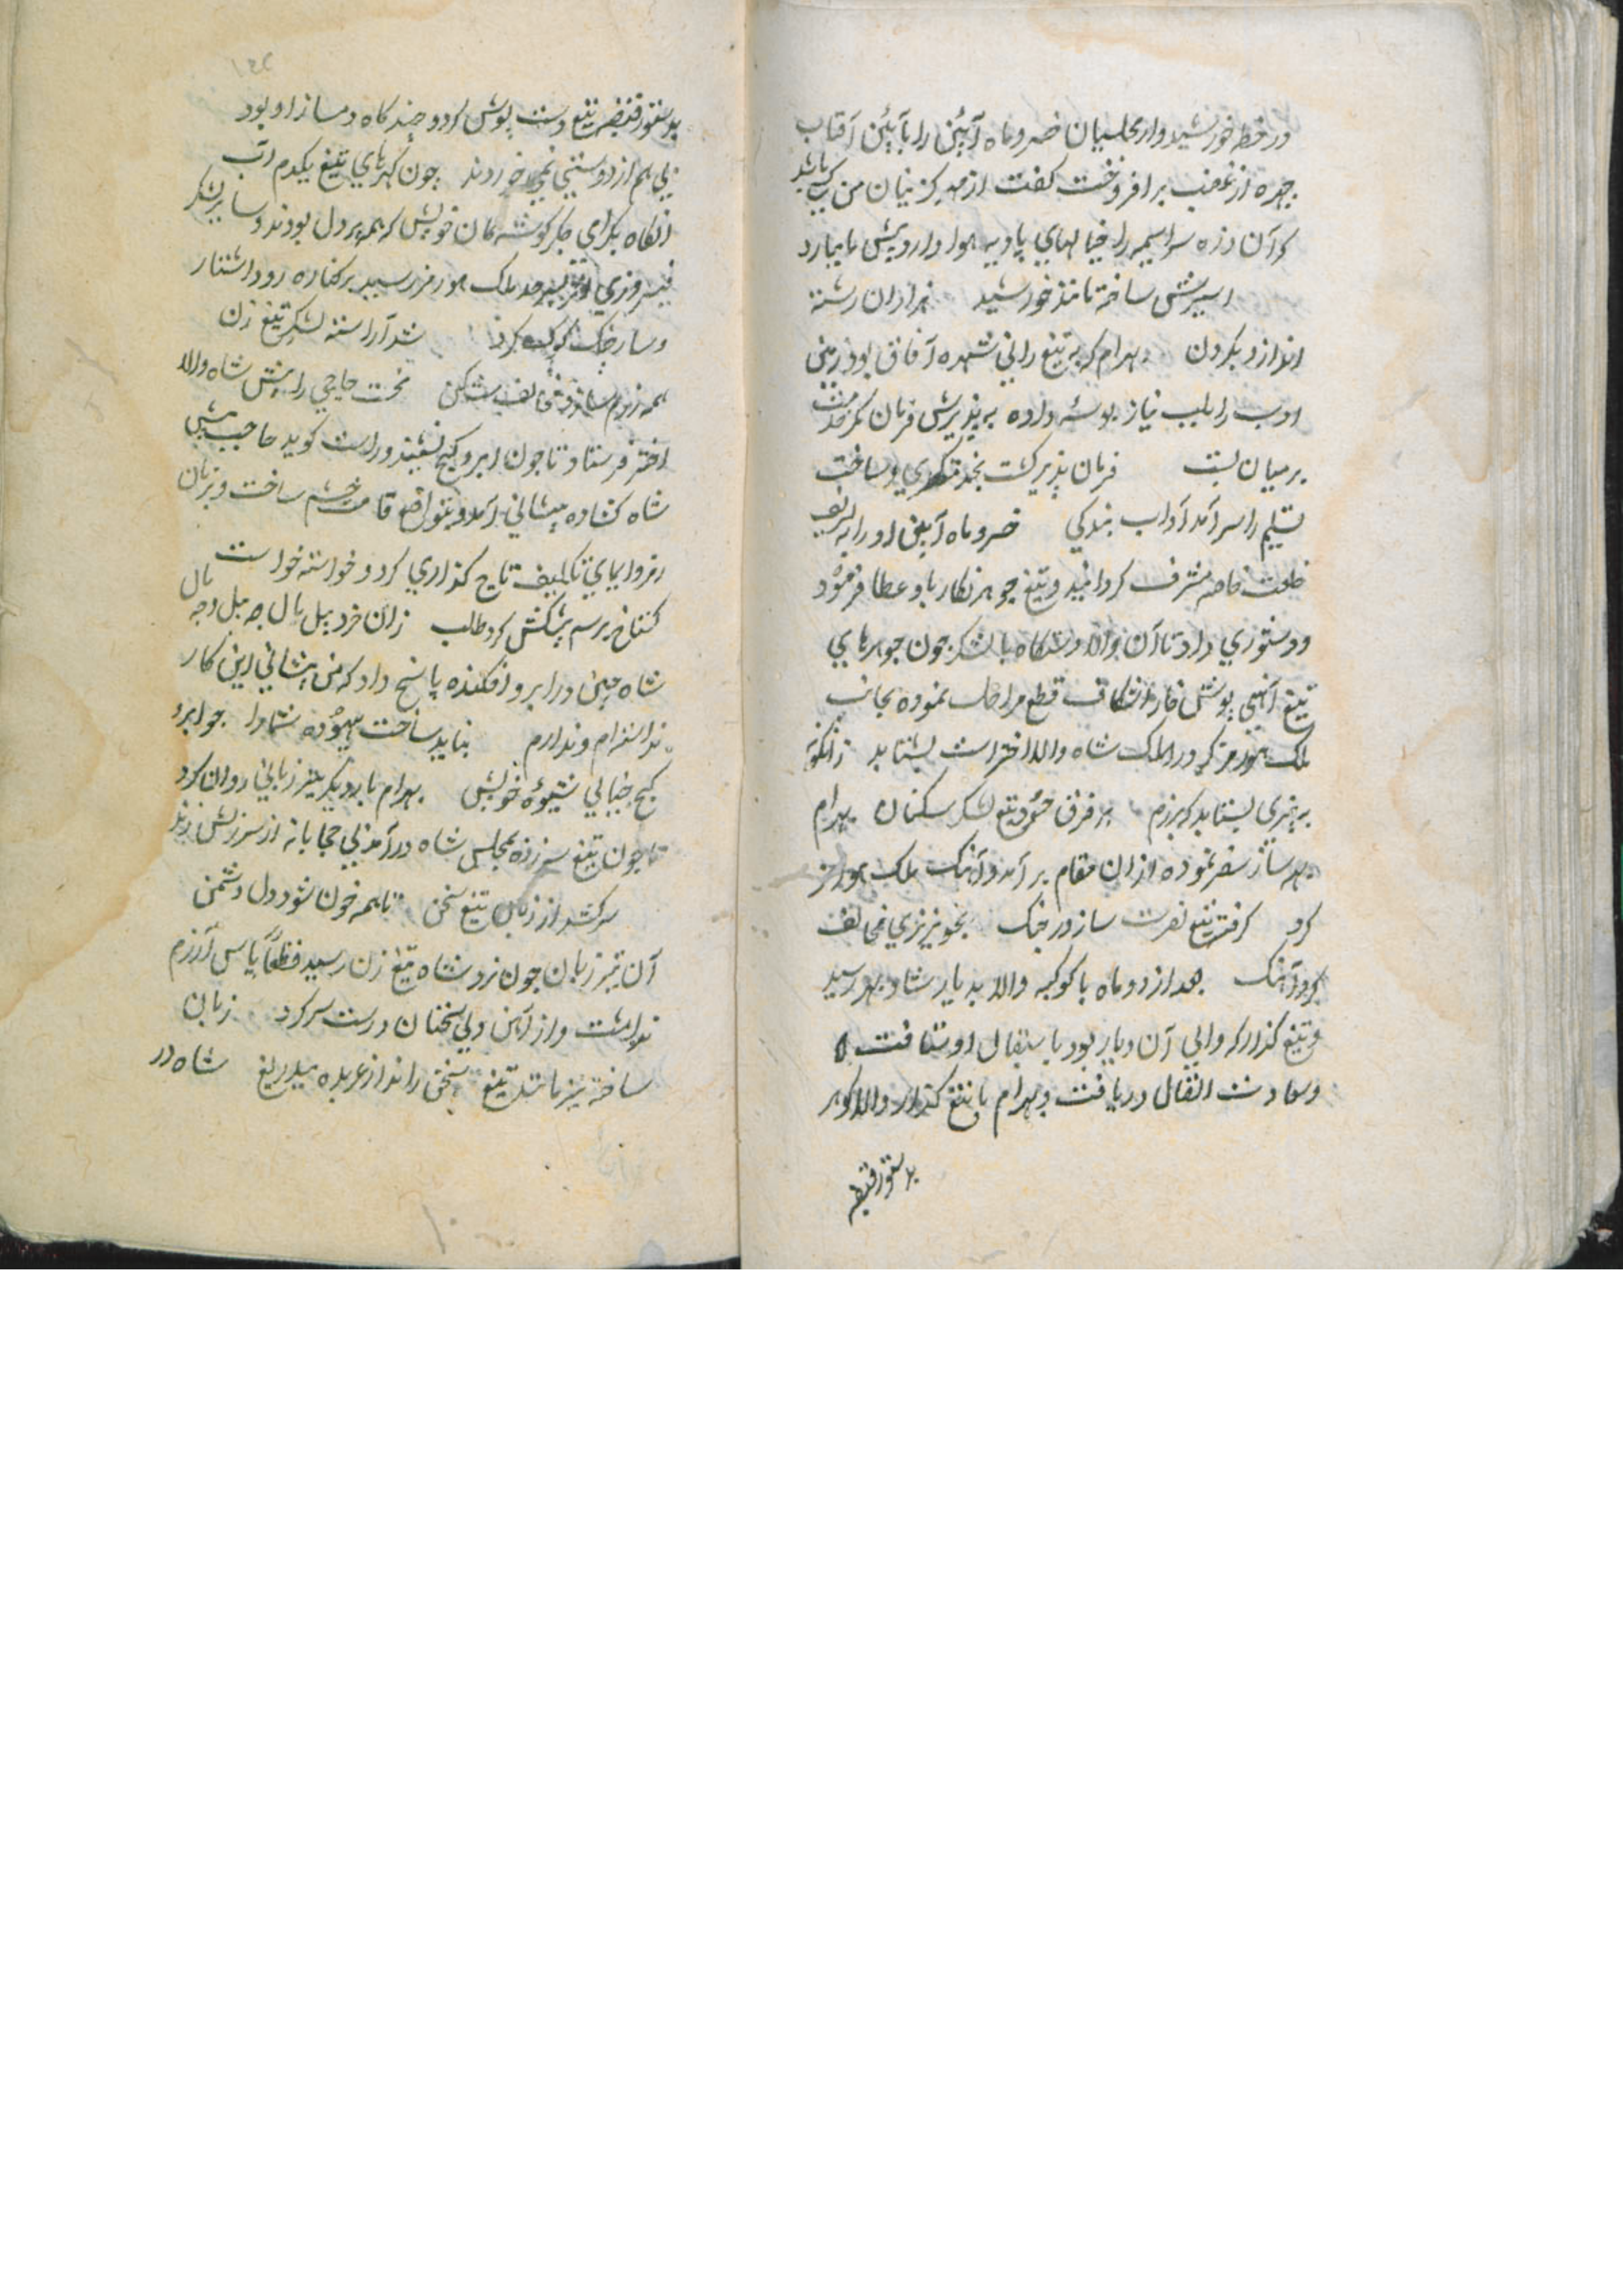 در خطه خورشید وار مجلسیان خسرو ماه آیین را بآیین آفتاب
چهره از غضب برافروخت گفت از مهر کزینان من کی باشد
کر آن ذره سراسیمه را خیالهای پا در هوا وا رویش
اسیرش ساخته مانند خورشید هزاران رشته
اندازد بکردن بهرام که به تیغ رانی شهره آفاق بود زمین
ادب را بلب نیاز بوسه داده به پذیرش فرمان کمر خدمت
بر میان بست فرمان پذیر کشت بخدمتگری و ساخت
تسلیم را سرآمد آداب بندکی خسرو ماه آیین او را به تشریف
خلعت خاصه مشرف کردانید و تیغ جوهر نکار باو عطا فرمود
و دستوری داد تا آن والا دستگاه با لشکر چون جوهرهای
تیغ آهنی پوش خارا شکاف قطع مراحل نموده بجانب
ملک هورمز که در الملک شاه والا اختر است بشتابد
به تیزی بشتابد که برزم بر فرق عدو تیغ لشکر شکنان بهرام
ساز سفر نموده از ان مقام بر آمد و آهنگ ملک هورمز
کرد کرفت تیغ نصرت ساز در جنگ بخونریزی مخالف
کرد آهنگ بعد از دو ماه با کوکبه والا بدیار رسید
و تیغ گذار که والی آن دیار بود باستقبال او شتافت
و سعادت اتفاق دریافت و بهرام با تیغ گذار والا کوهر
بدستور قبضه
بدستور قبضه تیغ دست پوش کرد و چند کاه دمساز او بود
بی هم از دوستی نمی خوردند چون کهرهای تیغ یکدم آب
انکاه بکرای جکر کوشه کان خویش که همه پر دل بودند و سایر لشکر
فیروزی اثر بسرحد ملک هورمز رسید بر کناره رود
و ساز جنگ شد آراسته لشکر تیغ زن
همه رزم ساز مخالف شکن نخست حاجبی را پیش شاه والا
اختر فرستاد تا چون ابرو کج نشیند و راست کوید حاجب پیش
شاه کشاده پیشانی آمد و بتواضع قامت خم ساخت و بزبان
رمز و ایمای تکلیف تاج گذاری کرد و خواسته خواست
پیشکش کرد طلب زان خرد
شاه چین در ابرو افکنده پاسخ داد که من پیشانی این کار
نداشته ام و ندارم نباید ساخت بیهوده شما را چو ابرو
کج خیالی شیوه خویش بهرام بار دیکر تیز زبانی روان کرد
تا چون تیغ سر زده بمجلس شاه در آمد بی محابانه از سرزنش زند
سر کشد از زبان تیغ سخن تا همه خون شود دل دشمن
آن تیز زبان چون نزد شاه تیغ زن رسید قطعاً پاس آزرم
نداشت و از آهن دلی سخنان درست سر کرد زبان
ساخته تیز مانند تیغ سخن راند از عربده بیدریغ شاه در